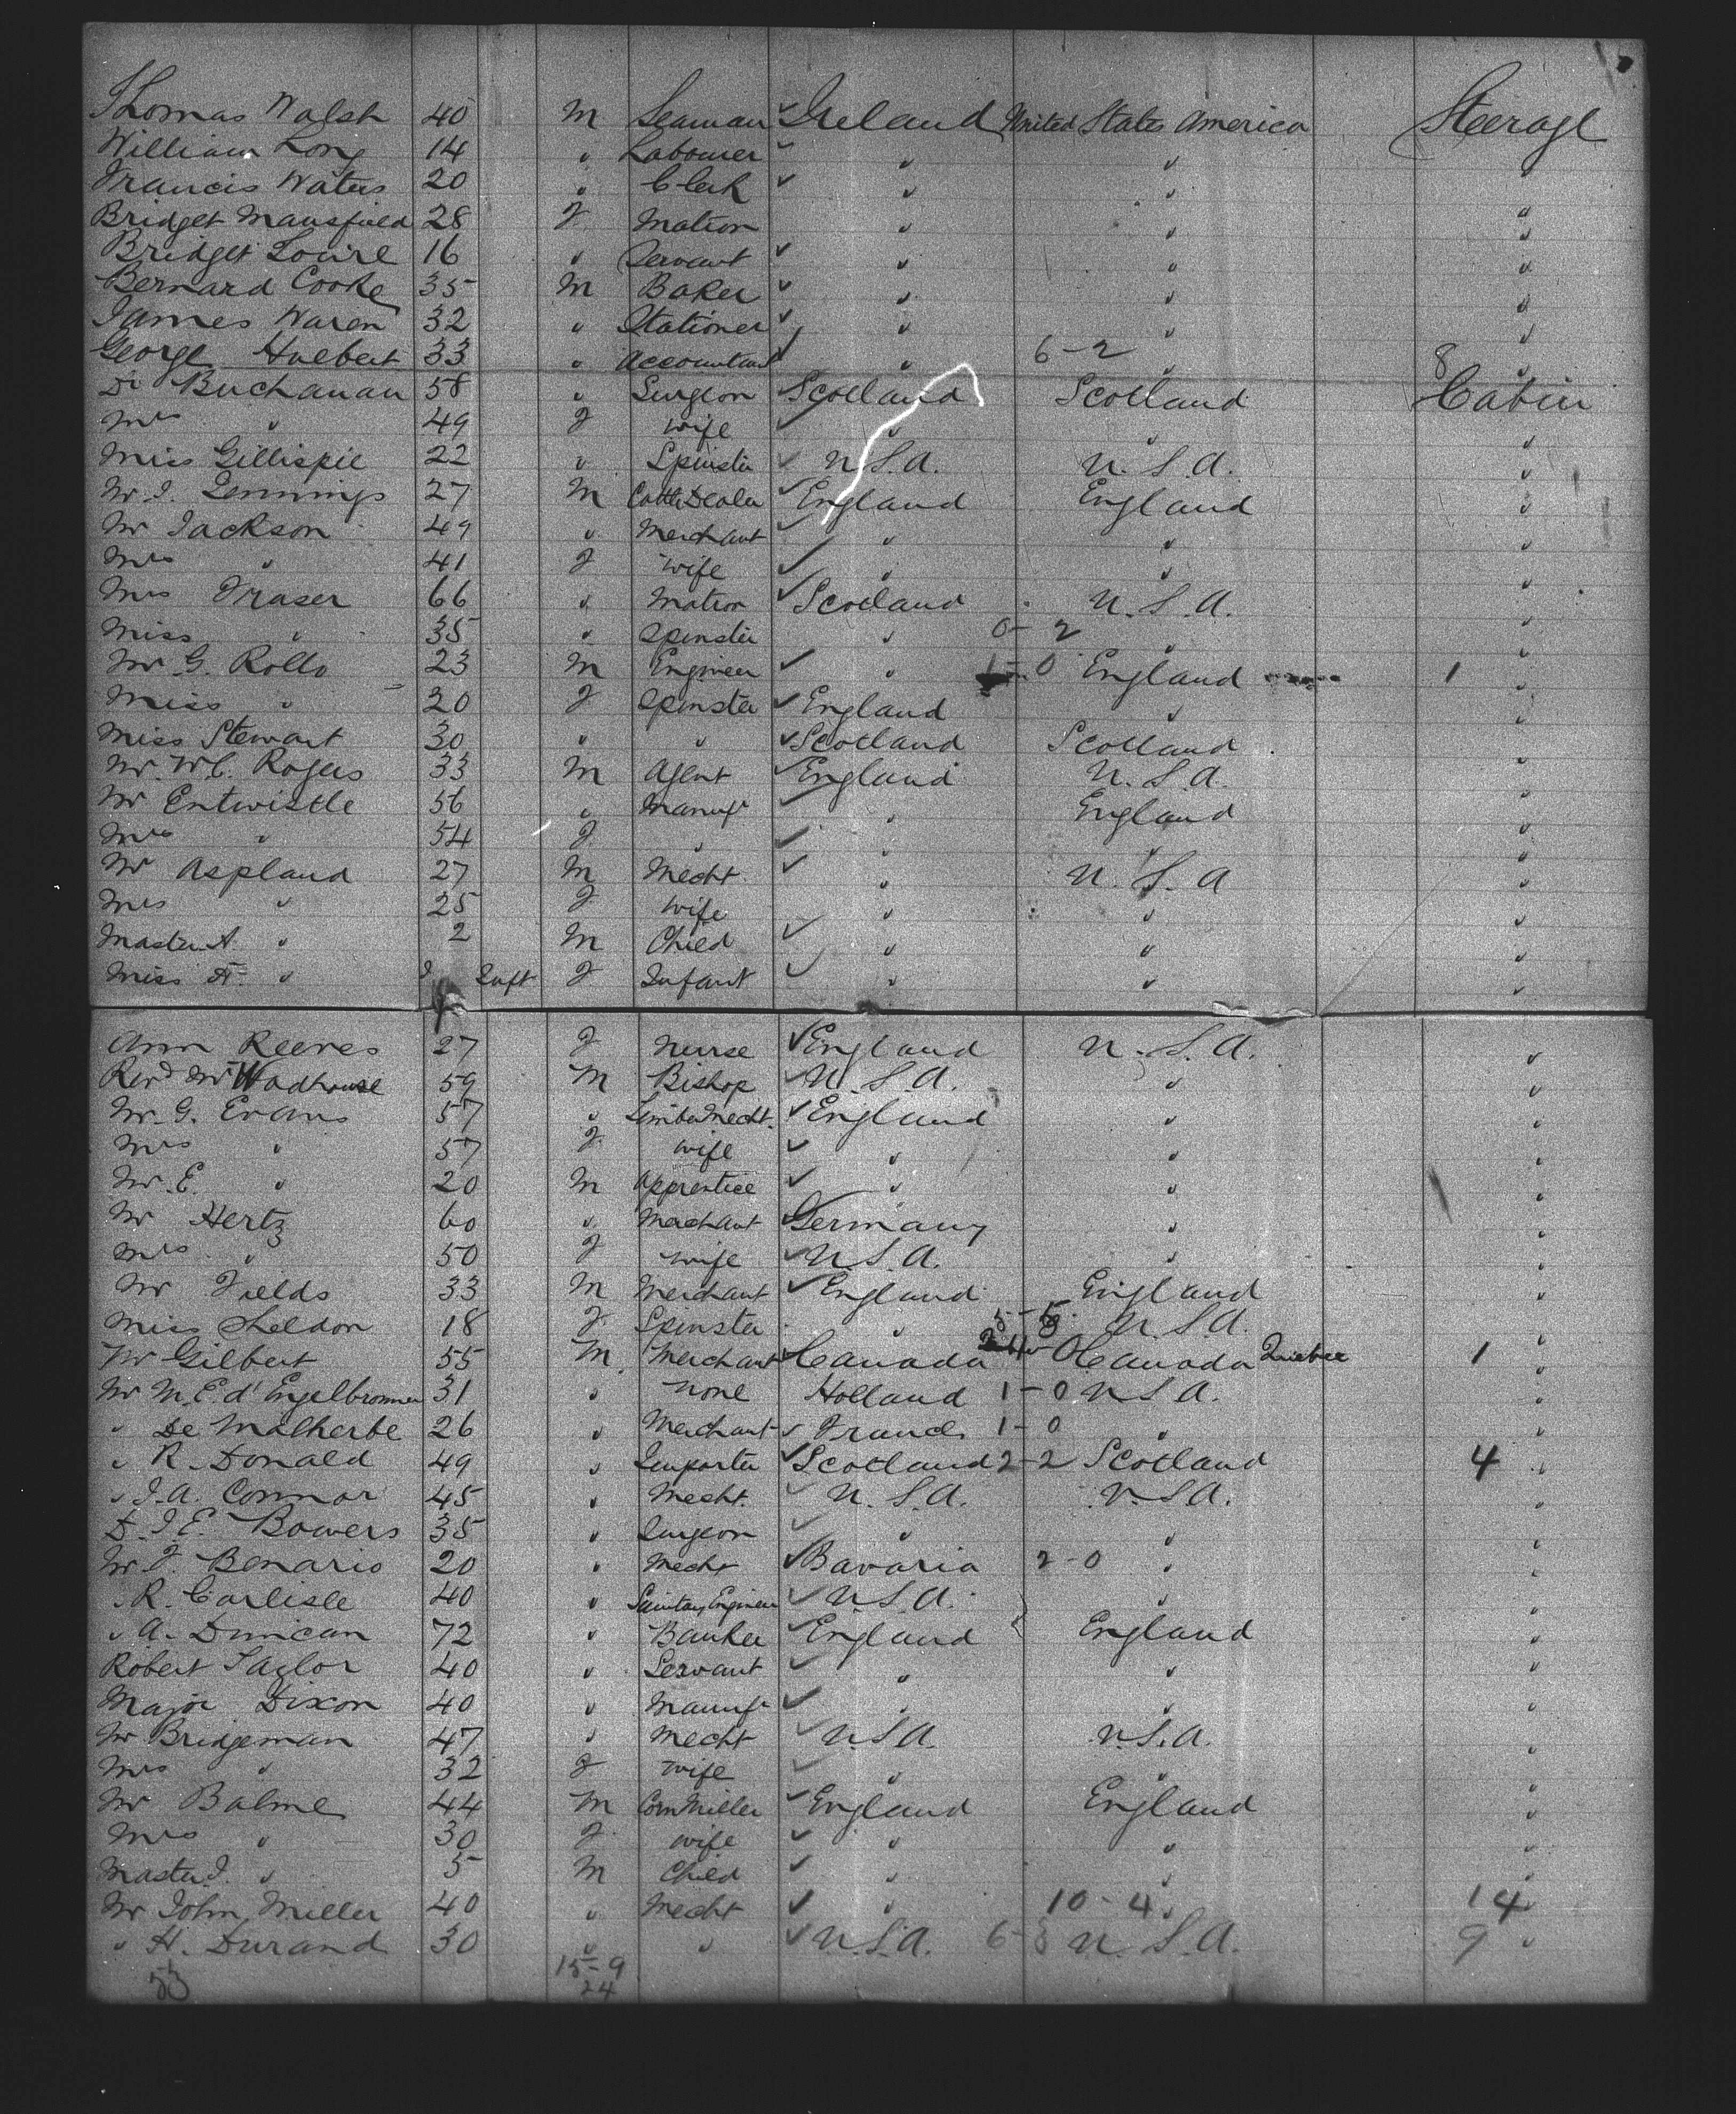 Thomas Walsh 40 M Seaman ✓ Ireland United States America Steerage
William Long 14 " Labourer ✓ " " "
Francis Waters 20 " Clerk ✓ " " "
Bridget Mansfield 28 F Matron " " "
Bridget 16 " Servant ✓ " " "
Bernard Cooke 35 M Baker ✓ " " "
James Waren 32 " Stationer ✓ " " "
George Hulbert 33 " Accountant ✓ " 6-2 " 8 "
Dr Buchanan 58 " Surgeon Scotland Scotland Cabin
Mrs " 49 F Wife ✓ " " "
Miss Gillispie 22 " Spinster ✓ U.S.A. U.S.A. "
Mr J. Jennings 27 M Cattle Dealer ✓ England England "
Mr Jackson 49 " Merchant ✓ " " "
Mrs " 41 F Wife ✓ " " "
Mrs Fraser 66 " Matron ✓ Scotland U.S.A. "
Miss " 35 " Spinster " 0-2 " "
Mr G. Rollo 23 M Engineer ✓ " 1-0 England 1 "
Miss " 20 F Spinster ✓ England " "
Miss Stewart 30 " " ✓ Scotland Scotland "
Mr. W.C. Rogers 33 M Agent ✓ England U.S.A. "
Mr Entwistle 56 " Manufr ✓ " England "
Mrs " 54 F " ✓ " " "
Mr Aspland 27 M Mecht. ✓ " U.S.A "
Mrs " 25 F Wife " " "
Master A. " 2 M Child ✓ " " "
Miss A. " Inft F Infant ✓ " " "
Ann Reeves 27 F Nurse ✓ England U.S.A. "
Revd Mr Wadhouse 59 M Bishop ✓ U.S.A. " "
Mr. G. Evans 57 " Timber Mecht. ✓ England " "
Mrs " 57 F Wife ✓ " " "
Mr. E. " 20 M Apprentice ✓ " " "
Mr Hertz 60 " Merchant ✓ Germany " "
Mrs " 50 F Wife ✓ U.S.A. " "
Mr Fields 33 M Merchant ✓ England England "
Miss Sheldon 18 F Spinster " U.S.A. "
Mr Gilbert 55 M Merchant ✓ Canada Canada Quebec 1 "
Mr M.E. d'Engelbronner 31 " None Holland 1-0 U.S.A. "
" De Malherbe 26 " Merchant ✓ France 1-0 " "
" R. Donald 49 " Importer ✓ Scotland 2-2 Scotland 4 "
" J.A. Connor 45 " Mecht. ✓ U.S.A. U.S.A. "
D. J.E. Bowers 35 " Surgeon ✓ " " "
Mr J. Benario 20 " Mecht ✓ Bavaria 2-0 " "
" R. Carlisle 40 " Sanitary Engineer ✓ U.S.A. " "
" A. Duncan 72 " Banker ✓ England England "
Robert Taylor 40 " Servant ✓ " " "
Major Dixon 40 " Manufr ✓ " " "
Mr Bridgeman 47 " Mecht ✓ U.S.A. U.S.A. "
Mrs " 32 F Wife ✓ " " "
Mr Balme 44 M Corn Miller ✓ England England "
Mrs " 30 F Wife ✓ " " "
Master J. " 5 M Child ✓ " " "
Mr John Miller 40 " Mecht ✓ " 10-4 " 14 "
" H. Durand 30 " " ✓ U.S.A. 6-3 U.S.A. 9 "
53 15-9
24